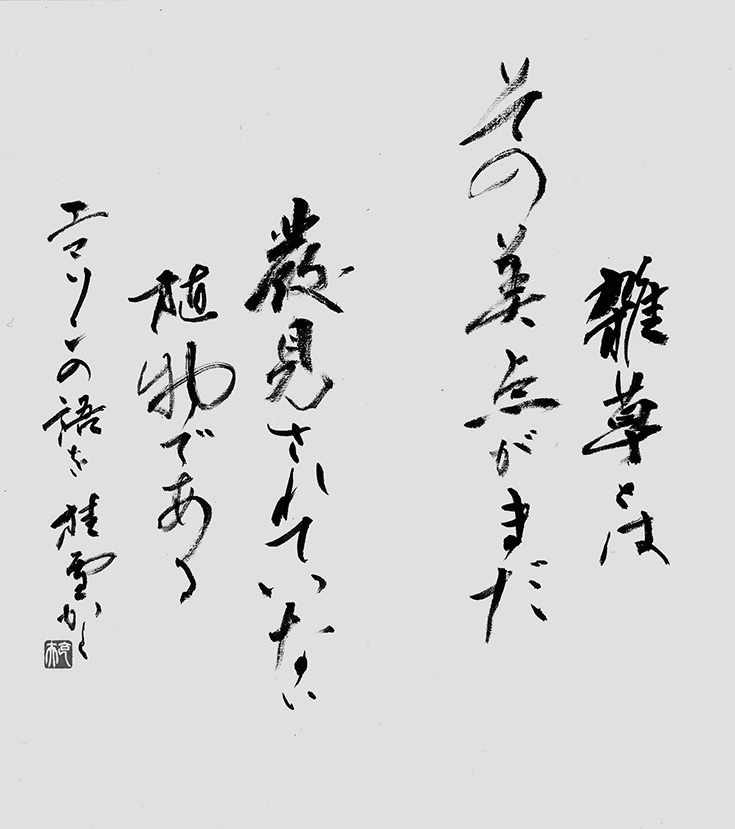 雑草とは
その美点がまだ
發見されていない
植物である
エマソンの語を 桂雪かく